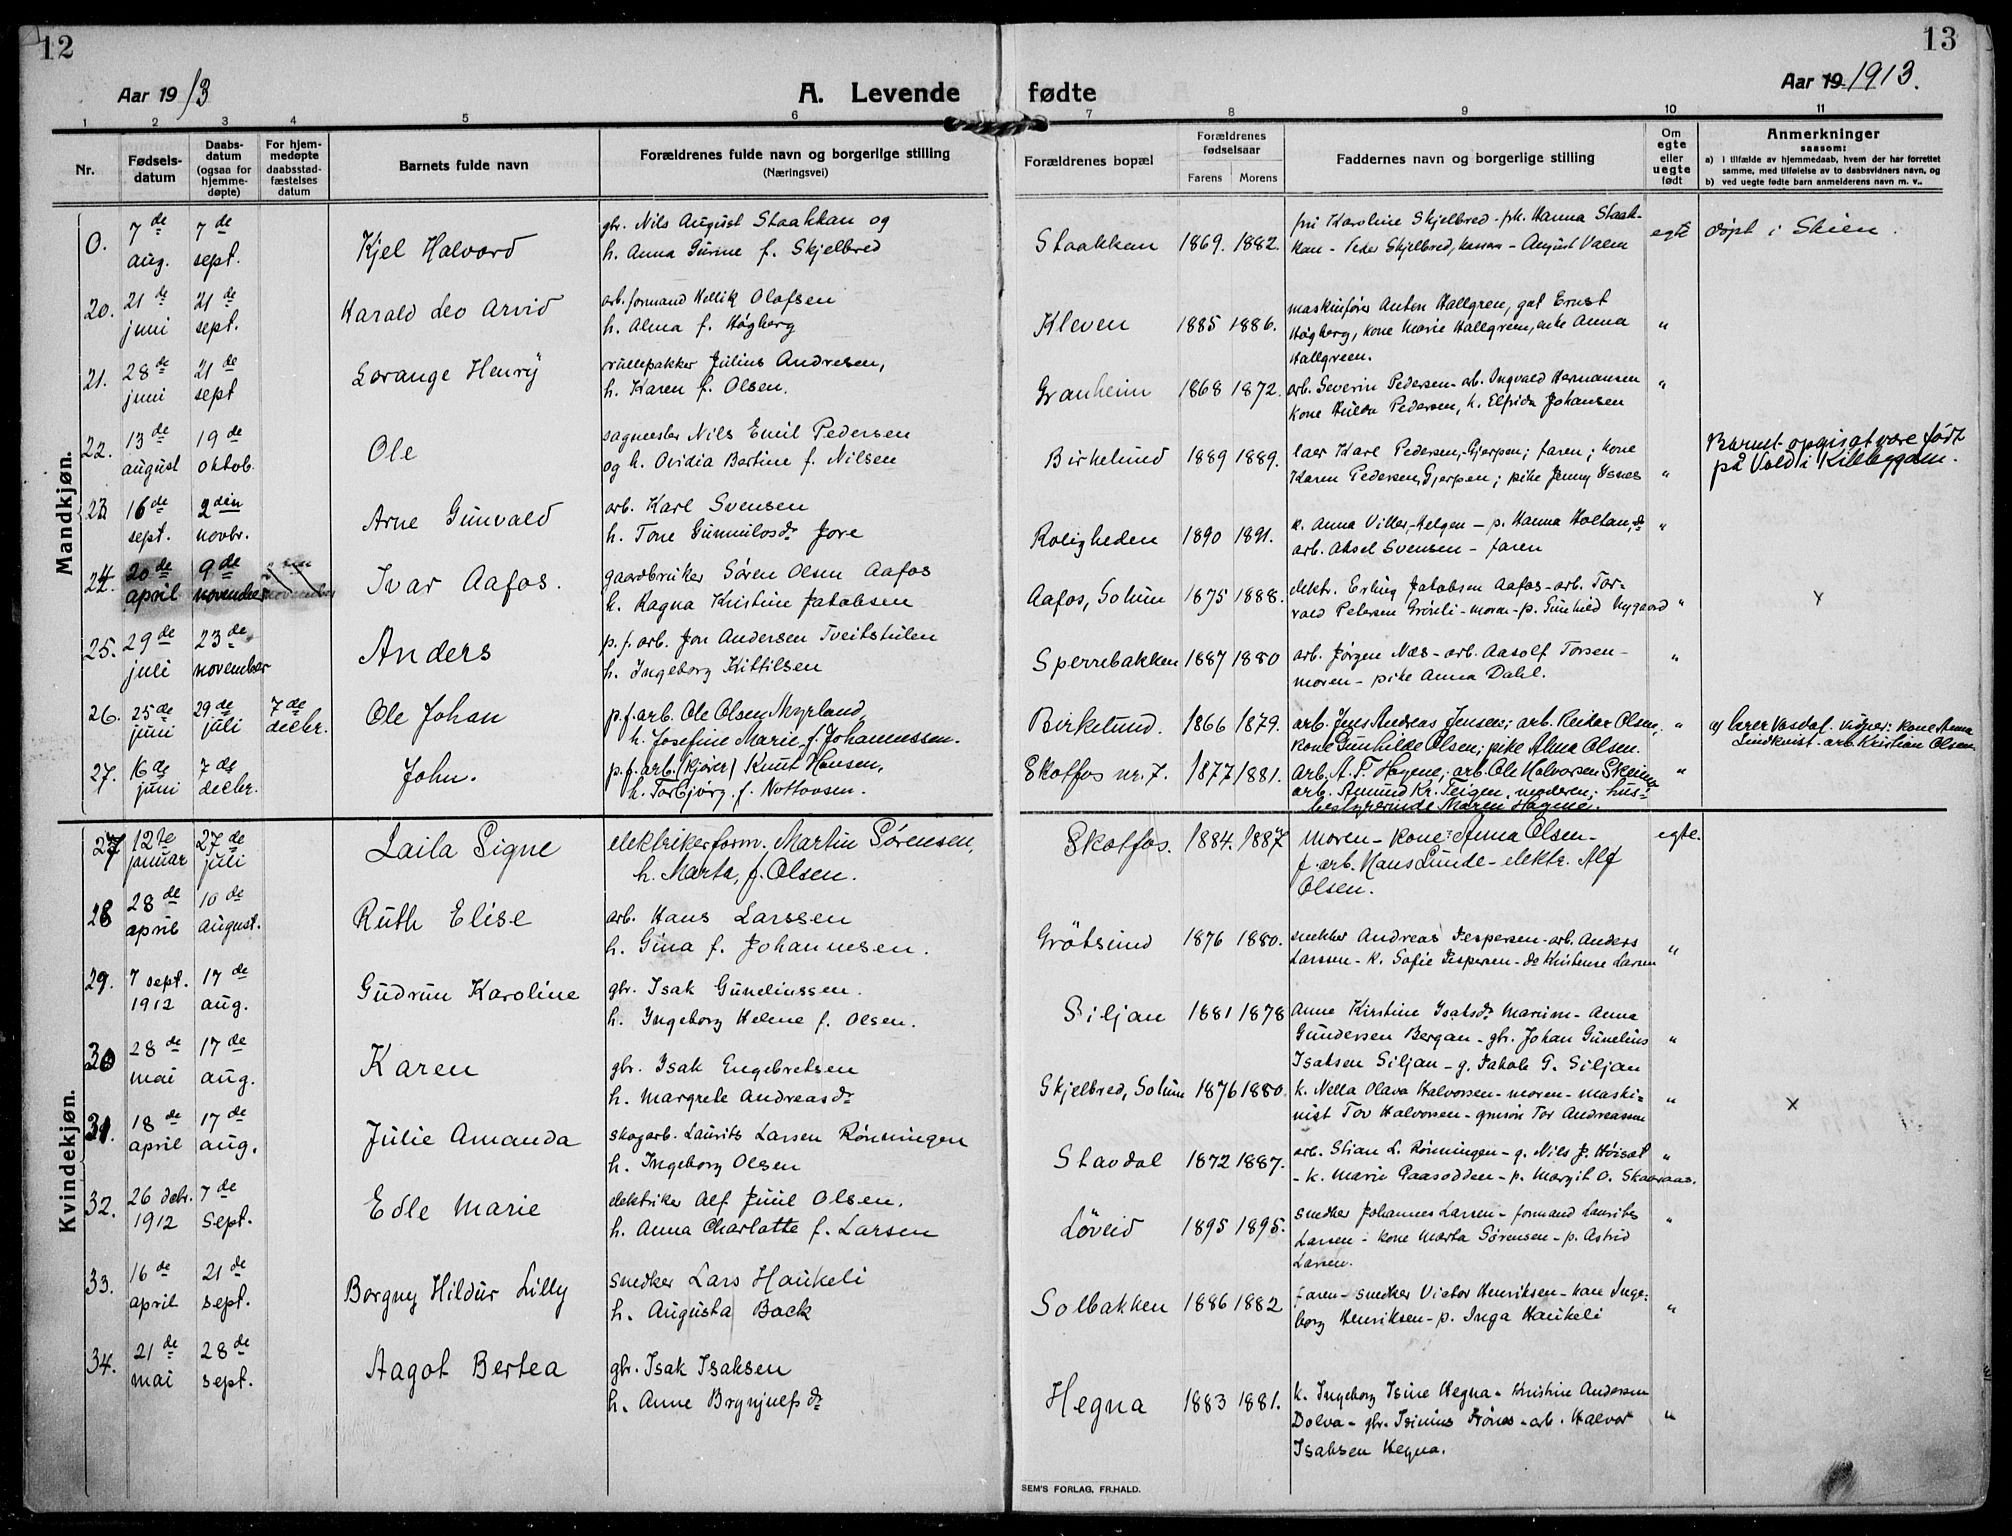 12
13
Aar 1913
A. Levende fødte
Aar 19 1913.
1 2 3 4 5 6 7 8 9 10 11
Nr.
Fødsels-
datum
Daabs-
datum
(ogsaa for
hjemme-
døpte)
For hjem-
medøpte
daabsstad-
fæstelses
datum
Barnets fulde navn
Forældrenes fulde navn og borgerlige stilling
(Næringsvei)
Forældrenes bopæl
Forældrenes
fødselsaar
Farens Morens
Faddernes navn og borgerlige stilling
Om
egte
eller
uegte
født
Anmerkninger
saasom:
a) i tilfælde av hjemmedaab, hvem der har forrettet
samme, med tilføielse av to daabsvidners navn, og
b) ved uegte fødte barn anmelderens navn m. v..
Mandkjøn.
0.
7de
aug.
7de
sept.
Kjel Halvard
gbr. Nils August Staakkan og
h. Anna Gurine f. Skjelbred
Staakken 1869. 1882.
fru Karoline Skjelbred - pk. Hanna Staak-
kan - Peder Skjelbred, - August Valen
egte
døpt i Skien.
20.
21de
juni
21de
sept.
Harald Leo Arvid
arb. formand Hellik Olafsen
h. Alma f. Høgberg
Kleven 1885 1886.
maskinfører Anton Hallgren, gat Ernst
Høgberg, kone Marie Hallgreen, enke Anna
Hallgreen.
"
21.
28de
juni
21de
sept
Lorange Henry
rullepakker Julius Andresen,
h. Karen f. Olsen.
Granheim 1868 1872.
arb. Severin Pedersen - arb. Ingvald Hermansen
kone Hulda Pedersen, k. Elfrida Johansen
"
22.
13de
august
19de
oktob.
Ole
sagmester Nils Emil Pedersen
og h. Ovidia Bertine f. Nilsen
Birkelund 1889 1889.
laer Karl Pedersen, Gjerpen; faren; kone
Karen Pedersen, Gjerpen; pike Jenny Isnes
"
Barnet opgis at være født
på Vold i Kilebygden.
23
16de
sept.
2den
novbr.
Arne Gunvald
arb. Karl Svensen
h. Tone Gunnulosdr Jore
Roligheden 1890 1891.
k. Anna Viller, Helgen - p. Hanna Holtan, do
arb. Aksel Svensen - faren
"
24.
20de
april
9de
november
2den
november
Ivar Aafos.
gaardbruker Søren Olsen Aafos
h. Ragna Kristine Jakobsen
Aafos, Solum 1875 1888.
elektr. Erling Jakobsen Aafos - arb. Tor-
vald Petersen Grönli - moren - p. Gunhild Nygaard
"
x
25.
29de
juli
23de
november
Anders
p. f. arb. Jon Andersen Tveitstulen
h. Ingeborg Kittilsen
Sperrebakken 1887 1880
arb. Jørgen Næs - arb. Aasolf Torsen -
moren - pike Anna Dahl.
"
26.
25de
juni
29de
juli
7de
decbr.
Ole Johan
p. f. arb. Ole Olsen Myrland,
h. Josefine Marie, f. Johannessen.
Birkelund. 1866 1879.
arb. Jens Andreas Jensen; arb. Reiter Olsen,
kone Gunhilde Olsen; pike Alma Olsen.
"
a) lærer Vasdal. vidner: kone Anna
Lindkvist. arb. Kristian Olsen
27.
16de
juni
7de
decbr.
John.
p. f. arb. (kjører) Knut Hansen,
h. Torbjørg. f. Nottovsen.
Skotfos nr. 7. 1877 1881.
Arb. A. P. Hagene; arb. Ole Halvorsen
arb. Amund Kr. Teigen, moderen; hus-
bestyrerinde Maren Hagene.
"
Kvindekjøn.
27
12te
januar
27de
juli
Laila Signe
elektrikerform. Martin Sørensen,
h. Marta, f. Olsen.
Skotfos. 1884. 1887
moren - kone Anna Olsen -
f. arb. Hans Lunde - elektr. Alf
Olsen.
egte.
28
28de
april
10de
august.
Ruth Elise
arb. Hans Larssen
h. Gina f. Johannesen.
Grötsund 1876 1880.
snekker Andreas Jespersen - arb. Anders
Larssen - k. Sofie Jespersen - do Kristense Larsen
"
29.
7 sept.
1912
17de
aug.
Gudrun Karoline
gbr. Isak Guneliussen.
h. Ingeborg Helene f. Olsen.
Siljan 1881 1878
Anne Kirstine Isaksdr Marum - Anna
Gundersen Bergan - gbr. Johan Gunelius
Isaksen Siljan - g. Jakob G. Siljan
"
30
28de
mai
17de
aug.
Karen
gbr. Isak Engebretsen
h. Margrete Andreasdr
Skjelbred, Solum 1876 1880.
k. Nella Olava Halvorsen - moren - maski-
nist Tov Halvorsen - Tor Andreassen
"
x
31.
18de
april
17de
aug.
Julie Amanda
skogarb. Laurits Larsen Rønningen
h. Ingeborg Olsen
Stavdal 1872 1887.
arb. Stian L. Rønningen - g. Nils J. Høisæt
- k. Marie Gaasodden - p. Margit O.
"
32.
26 debr.
1912
7de
sept.
Edle Marie
elektriker Alf Juul Olsen.
h. Anna Charlotte f. Larsen
Løveid 1895 1895.
snedker Johannes Larsen - formand Laurits
Larsen - kone Marta Sørensen - p. Astrid
Larsen.
"
33.
16de
april
21de
sept.
Borgny Hildur Lilly
snedker Lars Haukeli
h. Augusta Back
Solbakken 1886 1882
faren - snedker Victor Henriksen - kone Inge-
borg Henriksen - p. Inga Haukeli
"
34.
21de
mai
28de
sept.
Aagot Bertea
gbr. Isak Isaksen
h. Anne Brynjulfsdr
Hegna 1883 1881.
k. Ingeborg Isine Hegna - Kristine Andersen
Dolva - gbr. Isinius Trönes - arb. Halvor
Isaksen Hegna.
"
SEM'S FORLAG, FR.HALD.